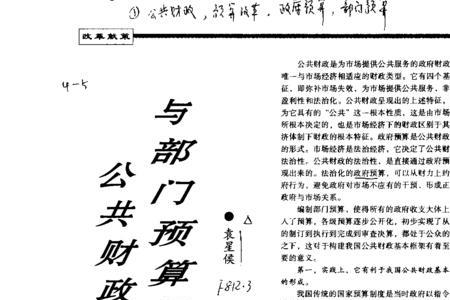 ① 公共财政，预算改革，政府预算，部门预算
改革献策
4-5
公共财政
与部门预算
△
●袁星侯
F812.3
公共财政是为市场提供公共服务的政府财政
唯一与市场经济相适应的财政类型。它有四个基
征，即弥补市场失效、为市场提供公共服务、非
盈利性和法治化。公共财政呈现出的上述特征，
为它具有的“公共”这一根本性质，这是由市场
所根本决定的，也是市场经济下的财政区别于其
济体制下财政的根本特征。政府预算是公共财政
的形式。市场经济是法治经济，它决定了公共财
法治性。公共财政的法治性，是直接通过政府预
现出来的。法治化的政府预算，可以从财力上约
府行为，避免政府对市场不应有的干预，形成正
政府与市场关系。
编制部门预算，使得所有的政府收支大体上
入了预算，各级预算逐步公开化，初步实现了从
的制订到执行到完成到审查决算，都处于公众的
之下，这对于构建我国公共财政基本框架有着至
要的意义。
第一，实践上，它有利于我国公共财政基本
的形成。
我国传统的国家预算制度是当时政府以指令